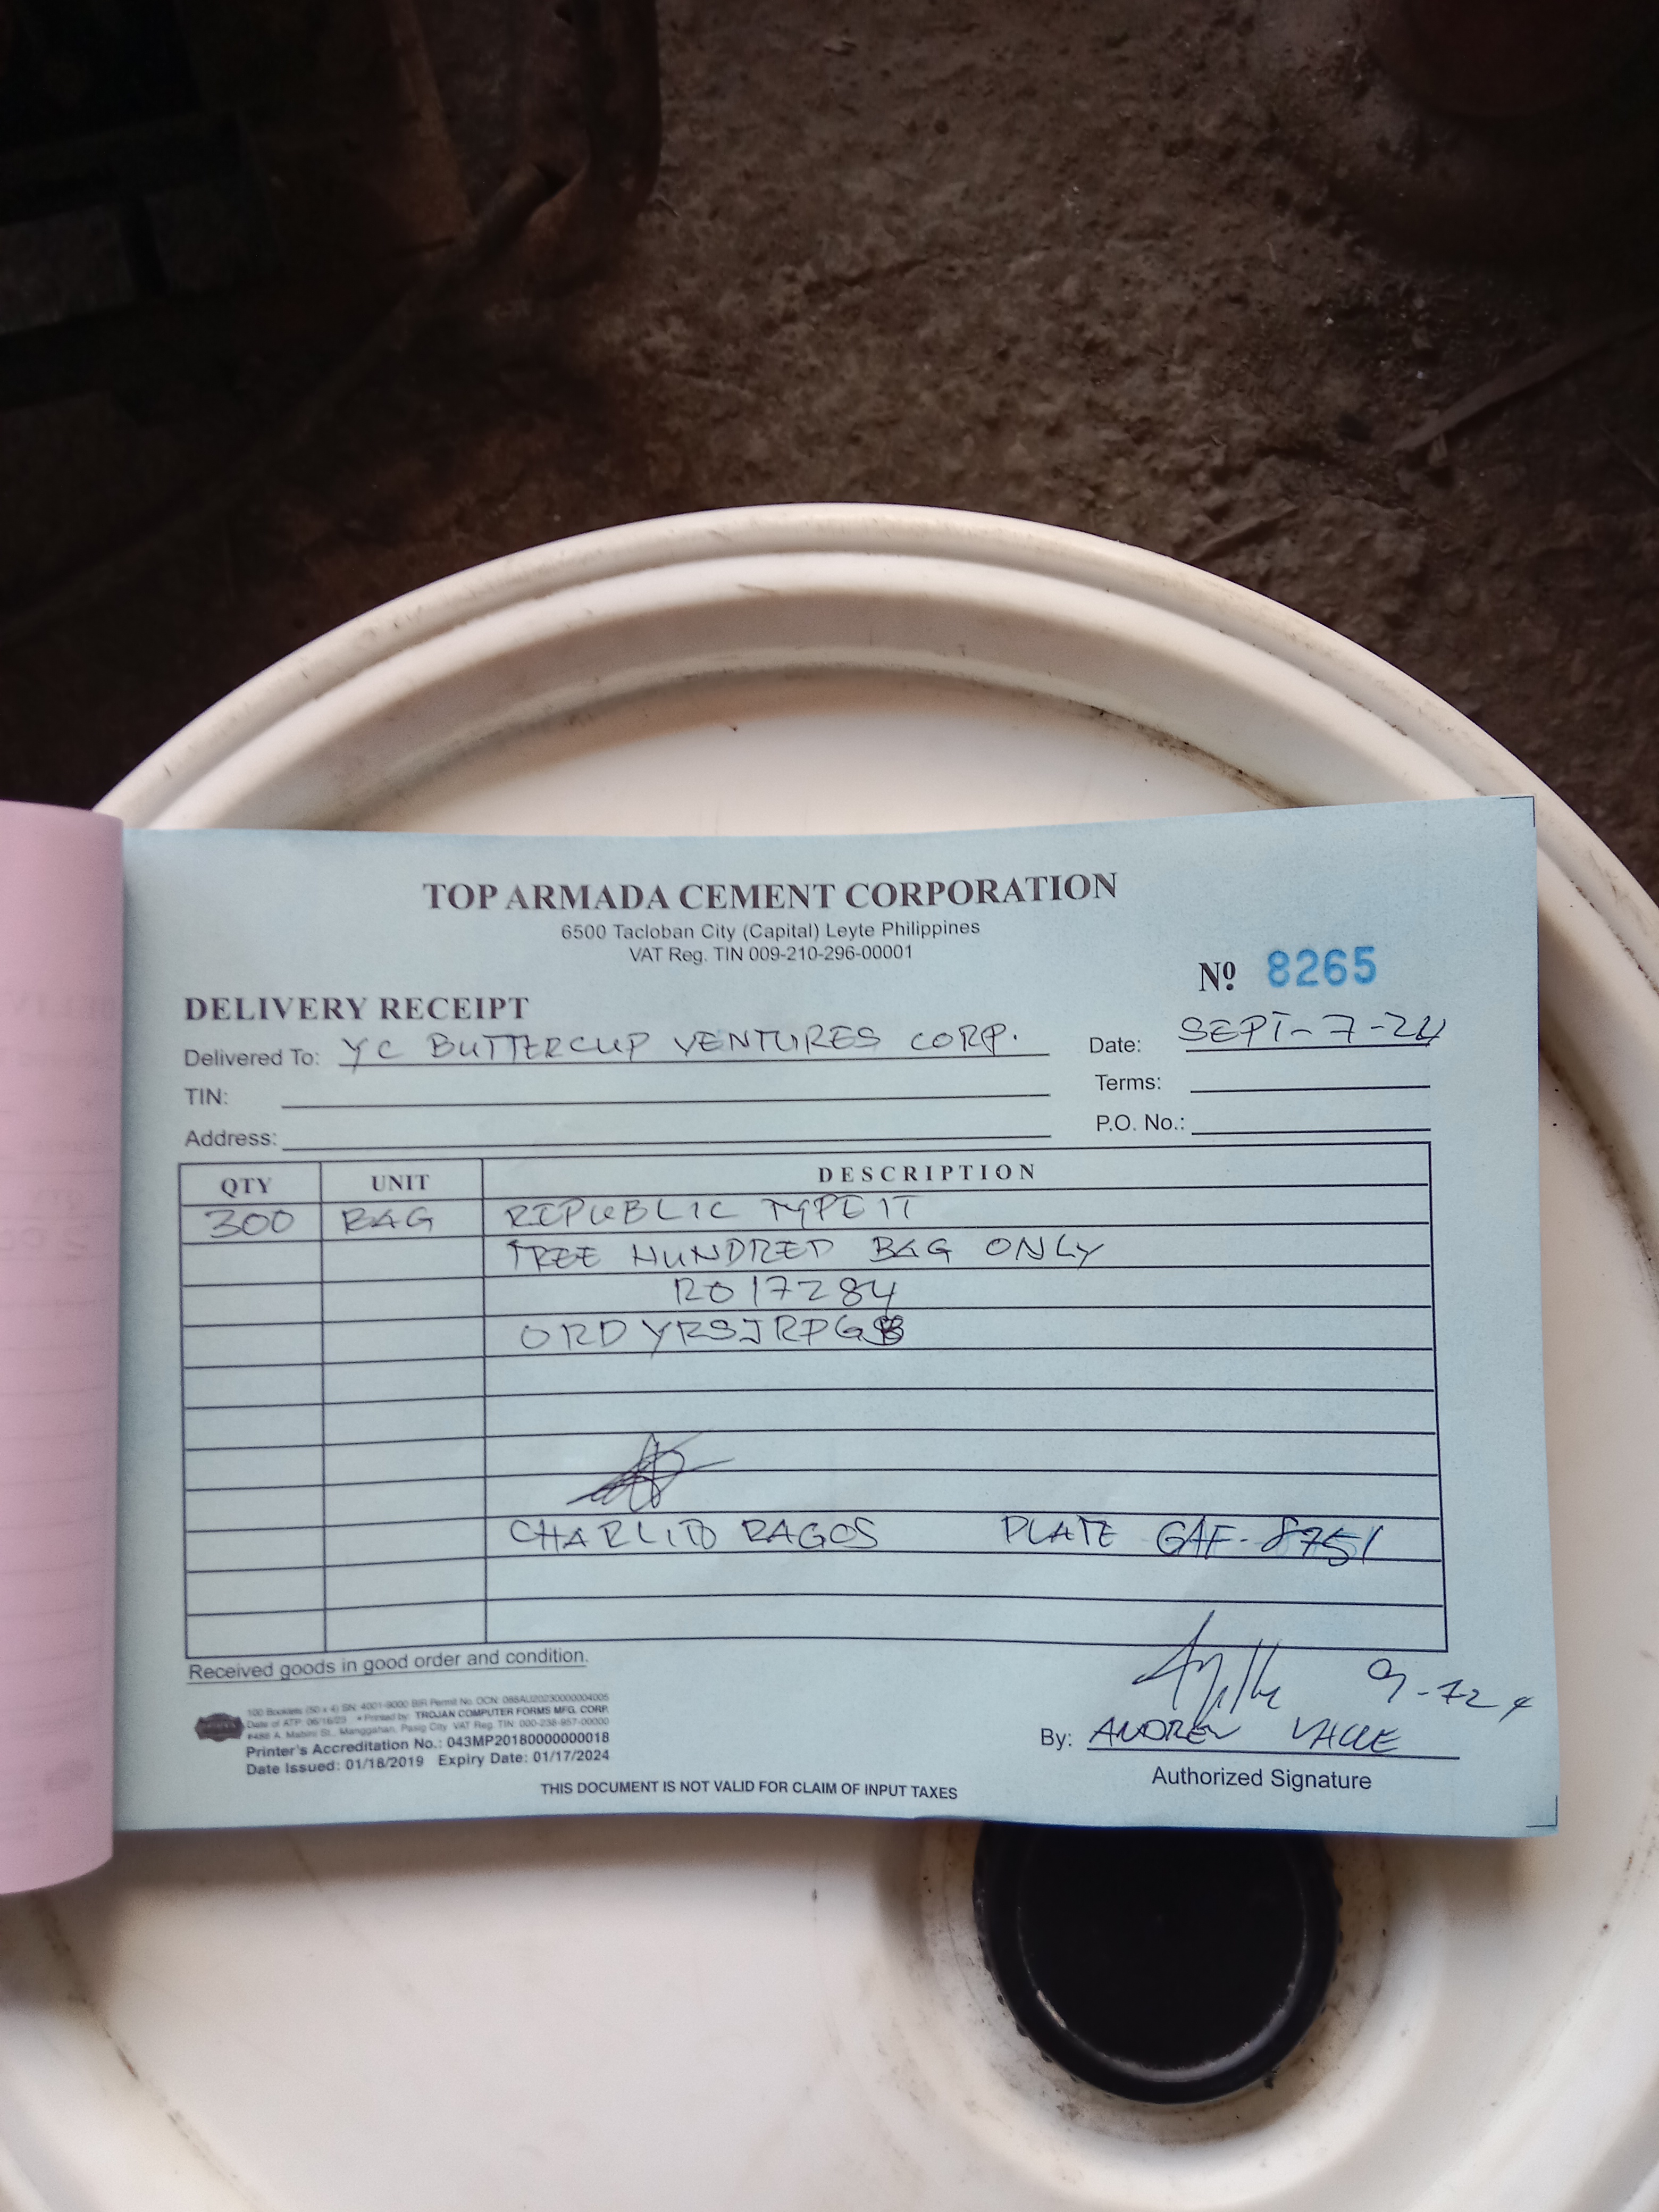 TOP ARMADA CEMENT CORPORATION
6500 Tacloban City (Capital) Leyte Philippines
VAT Reg. TIN 009-210-296-00001
Nº 8265
DELIVERY RECEIPT
Delivered To: YC BUTTERCUP VENTURES CORP.
Date: SEPT-7-24
TIN:
Terms:
Address:
P.O. No.:
QTY UNIT DESCRIPTION
300 BAG REPUBLIC TYPE 1T
TREE HUNDRED BAG ONLY
RO17284
ORDYRSJRPG
CHARLITO RAGOS PLATE GAF-8751
Received goods in good order and condition.
9-724
100 Booklets (50 x 4) SN: 4001-9000 BIR Permit No. OCN: 088AU20230000004005
Date of ATP: 06/16/23 • Printed by: TROJAN COMPUTER FORMS MFG. CORP.
#488 A. Mabini St., Manggahan, Pasig City VAT Reg. TIN: 000-238-957-00000
Printer's Accreditation No.: 043MP20180000000018
Date Issued: 01/18/2019 Expiry Date: 01/17/2024
By: ANDREW VALLE
Authorized Signature
THIS DOCUMENT IS NOT VALID FOR CLAIM OF INPUT TAXES